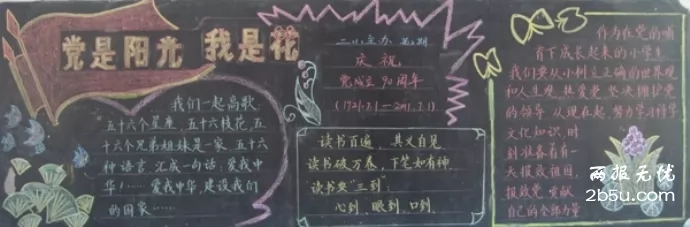 党是阳光 我是花
我们一起高歌
五十六个星座, 五十六枝花, 五
十六个兄弟姐妹是一家, 五十六
种语言, 汇成一句话, 爱我中
华! ...... 爱我中华, 建设我们
的国家 ......
二.(二)主办 第3期
庆祝
党成立90周年
(1921.7.1—2011.7.1)
读书百遍, 其义自见
读书破万卷, 下笔如有神.
读书要"三到":
心到、眼到、口到.
作为在党的哺
育下成长起来的小学生
我们要从小树立正确的世界观
和人生观, 热爱党, 坚决拥护党
的领导, 从现在起, 努力学习科学
文化知识, 时
刻准备着有一
天报效祖国,
报效党, 贡献
自己的全部力量
两报无忧
2b5u.com